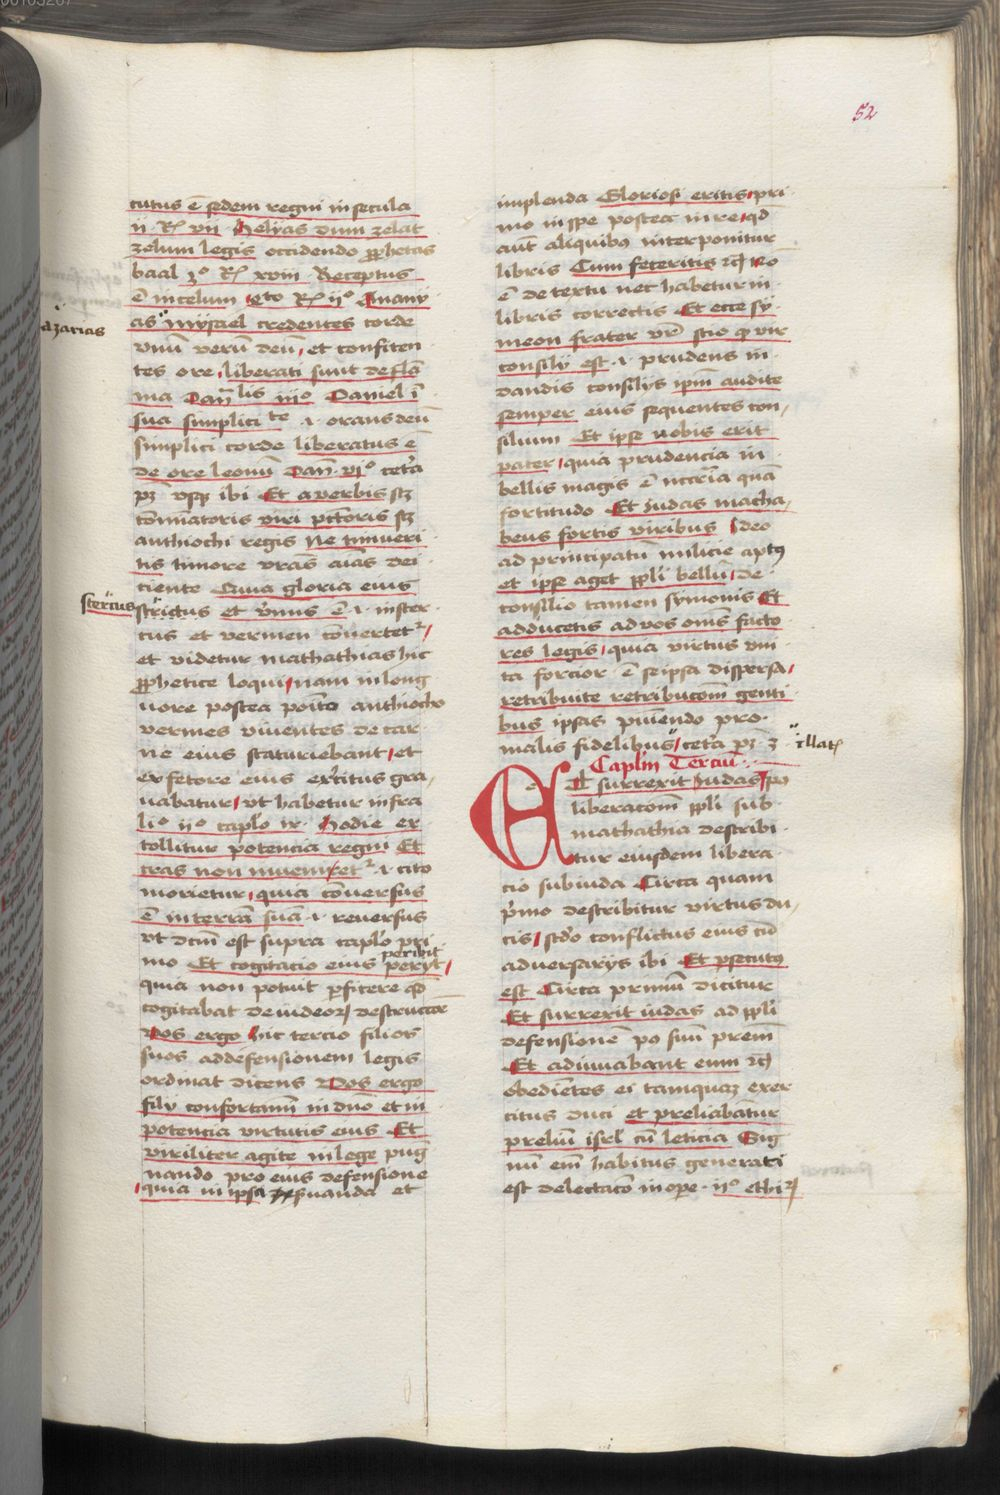 52
cutus ē sedem regni in secula
ii · Rͨ vii · Helyas dum zelat
zelum legis occidendo ꝓphetas
baal 3º Rͨ xviii Receptus
ē in celum · qͣto Rͨ iiº Anany
azarias
as mysael credentes corde
vnū verū deū, et confiten
tes ore, liberati sunt de flā
ma Danͥlis iiiº Daniel ī
sua simplicitͤ .i. orans deū
simplici corde liberatus ē
de ore leonū Dan̄ · vjº cetͣa
pꝫ vsqꝫ ibi Et a verbis scꝫ
com̄inatoris viri pctōris scꝫ
anthiochi regis ne timueri
tis timore vrās aīas dei
ciente Quia gloria eius
stercus
strictus et v̾mis ē .i. in ster
cus et vermen cōvertetʳ
et videtur mathathias hic
ꝓphetice loqui, nam in long
iiore postea poītō anthiocho
vermes viventes de car
ne eius staturiebant, et
ex fetore eius ex̾citus gra
uabatur, vt habetur infra
liº iiº caplō ix · Hodie ex
tollitur potencia regni Et
cras non invenietʳ .i. cito
morietur, quia cōversus
ē in terrā suā .i. reuersus
vt dcm̄ est supra caplō pri
mo Et cogitacio eius peryt
peribit
quia non potuit ꝑficere qd̄
cogitabat de iudeoꝝ destruccōe
Vos ergo hic tercio filios
suos ad defensionem legis
ordinat dicens Vos ergo
fily confortamī in dn̄o et in
potencia virtutis eius Et
viriliter agite in lege pug
nando pro eius defensione
quia in ipsa seruanda et
implenda Gloriosi eritis, pri
mo in spe postea in re, qd
aūt aliquibꝰ interponitur
libris Cum feceritis rcꝫ nō
ē de textu nec habetur in
libris correctis Et ecce sy
meon frater vr̄ scio qꝫ vir
consily est .i. prudens in
dandis consilys ipm̄ audite
semper eius sequentes con
silium Et ipse uobis erit
pater, quia prudencia in
bellis magis ē nccͣria quā
fortitudo Et iudas macha
beus fortis viribus Ideo
ad principatū milicie aptꝰ
et ipse aget ppl̄i bellū, de
consilio tamen symonis Et
adducetis ad vos om̄s facto
res legis, quia virtus vni
ta forcior ē seipsa dispersa
retribuite retribucōm genti
bus ipsas puniendo pro
malis fidelibus, cetͣa pꝫ · 3
illatꝭ
Caplm̄ Tercīū
Et surrexit Iudas, po
liberacōm ppl̄i sub
mathathia describi
tur eiusdem libera
cio sub iuda Circa quam
p̾mo describitur virtus du
cis, scd̄o conflictus eius cū
adversarys ibi Et ꝑsecutꝰ
est Circa primū dicitur
Et surrexit iudas ad ppl̄i
defensionē po suū prem̄
Et adiuuabant eum rcꝫ
obedīetes ei tamquaꝫ exer
citus duci et preliabātur
preliū isrl̄ cū leticia Sig
nū em̄ habitus generati
est delectacō in oꝑe · iiº ethiꝝ